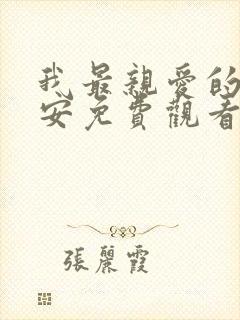 我最親愛的
安免費觀看
張麗霞